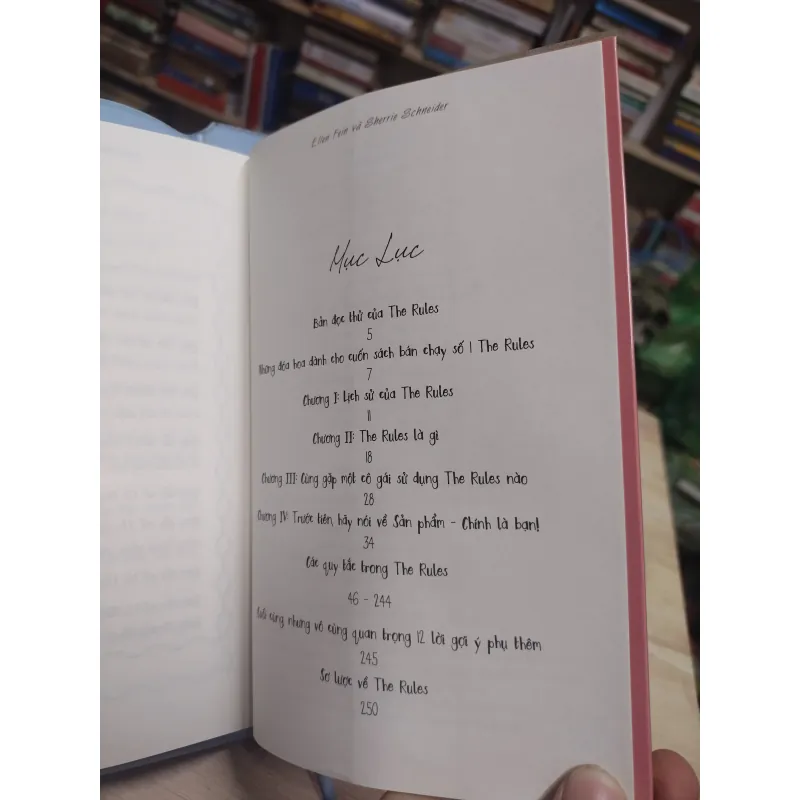 Ellen Fein và Sherrie Schneider
Mục Lục
Bản đọc thử của The Rules
5
Những đóa hoa dành cho cuốn sách bán chạy số 1 The Rules
7
Chương I: Lịch sử của The Rules
11
Chương II: The Rules là gì
18
Chương III: Cùng gặp một cô gái sử dụng The Rules nào
28
Chương IV: Trước tiên, hãy nói về Sản phẩm - Chính là bạn!
34
Các quy tắc trong The Rules
46 - 244
Cuối cùng nhưng vô cùng quan trọng 12 lời gợi ý phụ thêm
245
Sơ lược về The Rules
250